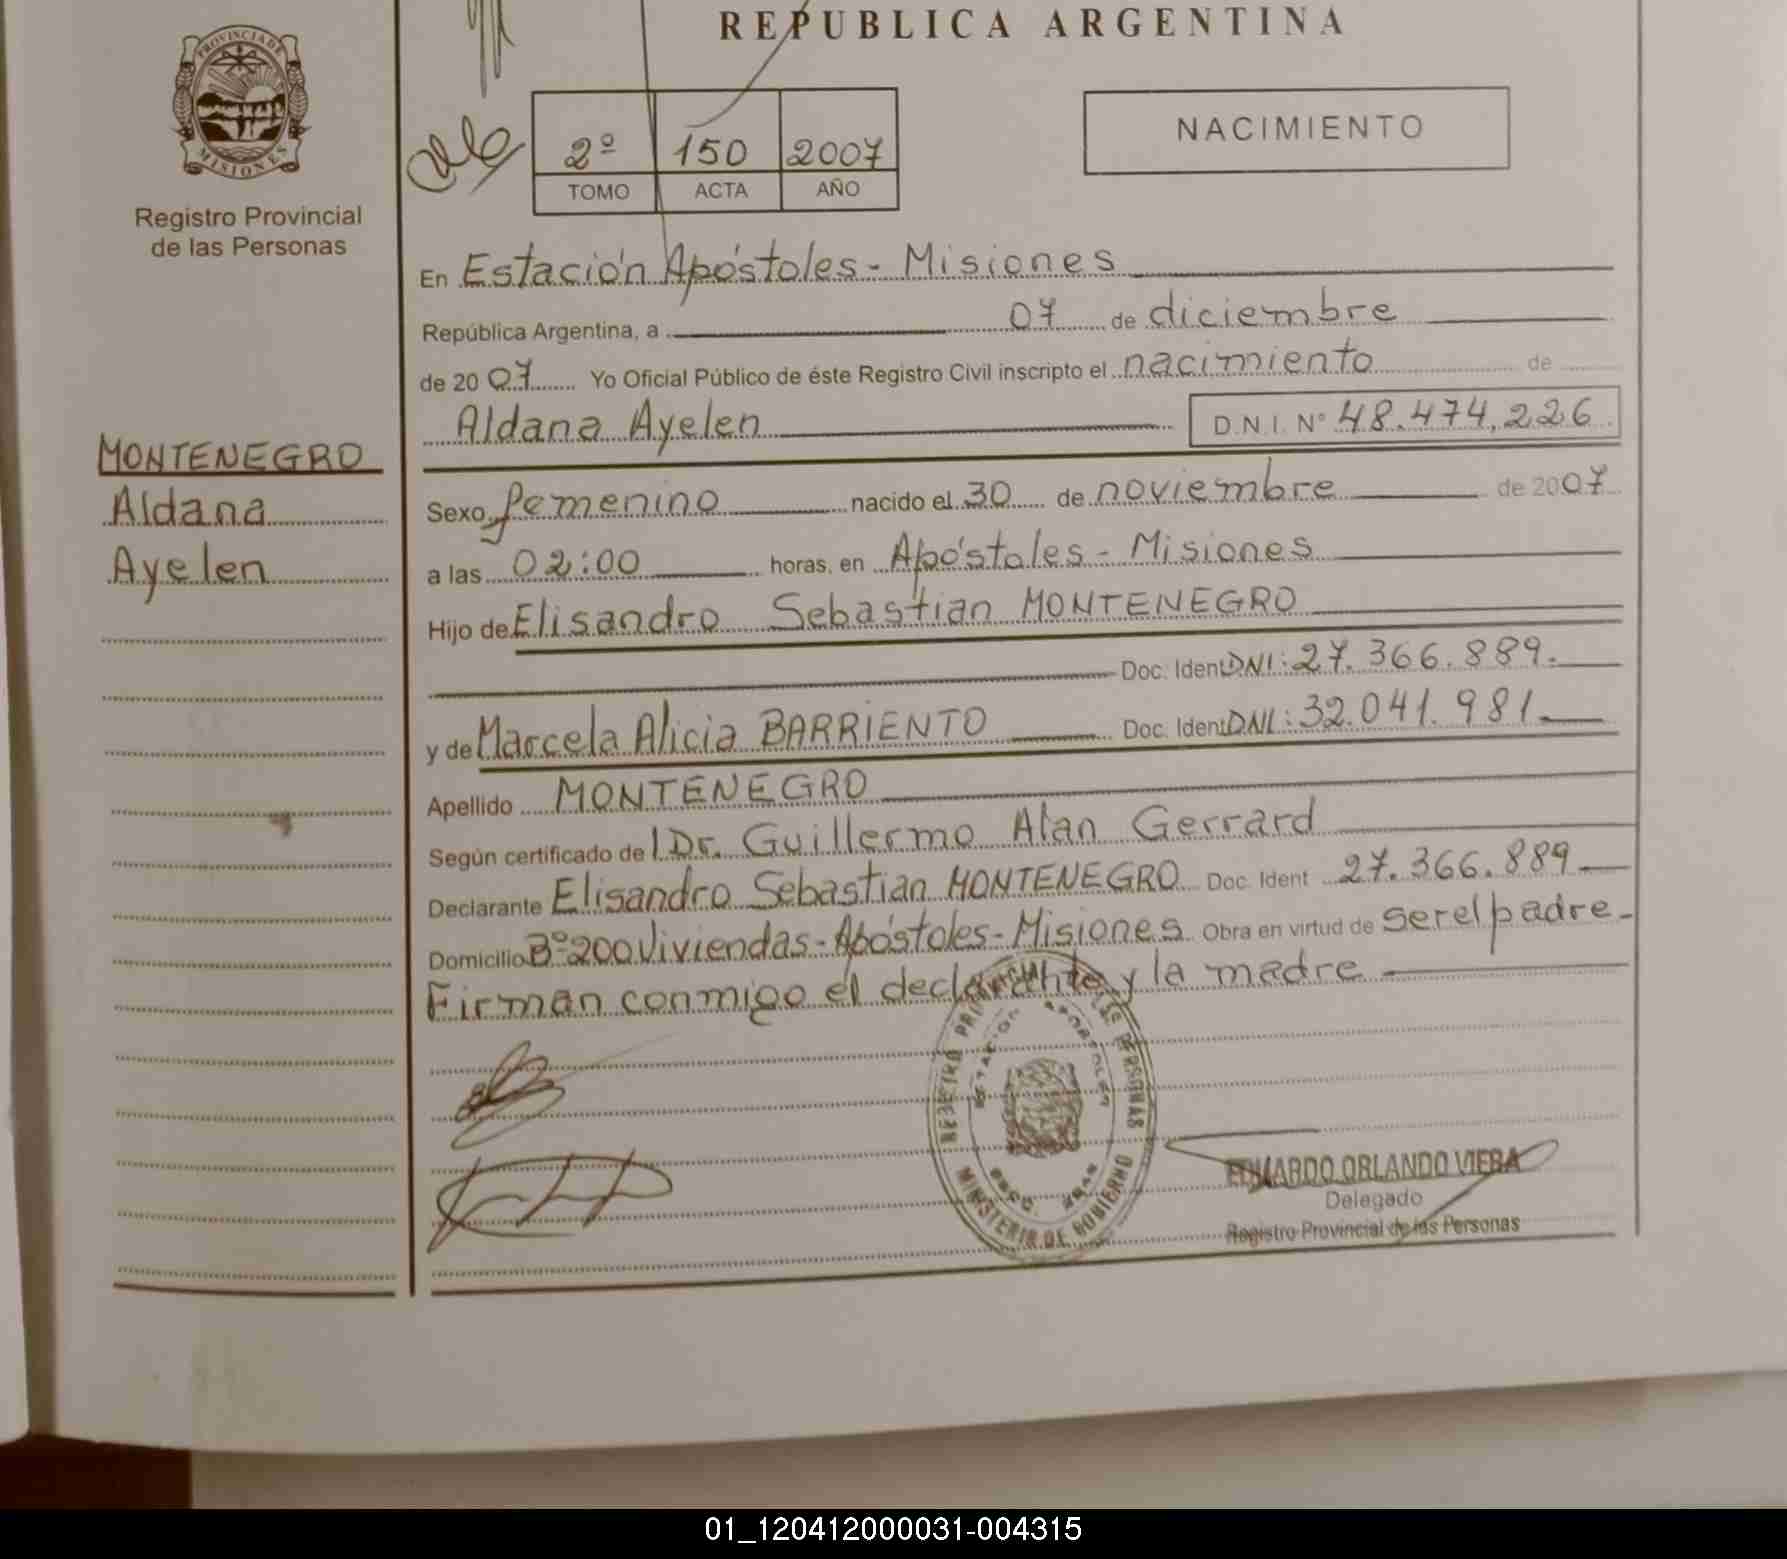 REPUBLICA ARGENTINA
PROVINCIA DE
MISIONES
Registro Provincial
de las Personas
2º 150 2007
TOMO ACTA AÑO
NACIMIENTO
En Estación Apóstoles - Misiones
República Argentina, a 07 de diciembre
de 20 07 Yo Oficial Público de éste Registro Civil inscripto el nacimiento de
Aldana Ayelen D.N.I. Nº 48.474.226
MONTENEGRO
Aldana
Ayelen
Sexo femenino nacido el 30 de noviembre de 2007
a las 02:00 horas, en Apóstoles - Misiones
Hijo de Elisandro Sebastian MONTENEGRO
Doc. Ident DNI: 27.366.889.
y de Marcela Alicia BARRIENTO Doc. Ident DNI: 32.041.981
Apellido MONTENEGRO
Según certificado de l Dr. Guillermo Alan Gerrard
Declarante Elisandro Sebastian MONTENEGRO Doc. Ident 27.366.889
Domicilio Bº 200 Viviendas - Apóstoles - Misiones Obra en virtud de ser el padre -
Firman conmigo el declarante y la madre
REGISTRO PROVINCIAL DE LAS PERSONAS
ESTACION APOSTOLES
MINISTERIO DE GOBIERNO
EDUARDO ORLANDO VIERA
Delegado
Registro Provincial de las Personas
01_120412000031-004315